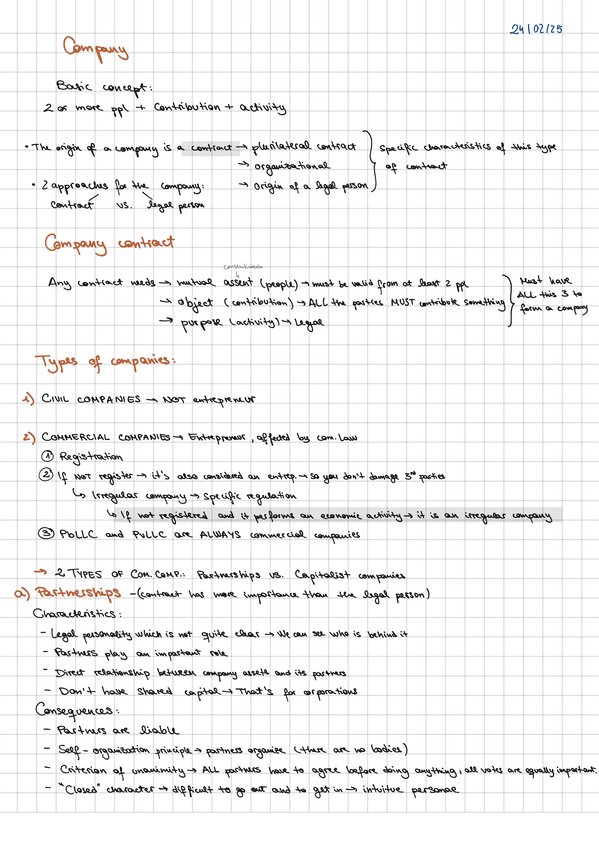 24/02/25
Company
Basic concept:
2 or more ppl + contribution + activity
• The origin of a company is a contract → plurilateral contract
→ organizational
→ origin of a legal person
specific characteristics of this type of contract
• 2 approaches for the company:
contract vs. legal person
Company contract
Any contract needs → mutual assent (people) → must be valid from at least 2 ppl
→ object (contribution) → ALL the parties MUST contribute something
→ purpose (activity) → Legal
Must have
ALL this 3 to
form a company
Types of companies:
1) CIVIL COMPANIES → NOT entrepreneur
2) COMMERCIAL COMPANIES → Entrepreneur, affected by com. law
① Registration
② If NOT register → it's also considered an entrep. → so you don't damage 3rd parties
↳ Irregular company → specific regulation
↳ If not registered and it performs an economic activity → it is an irregular company
③ PbLLC and PvLLC are ALWAYS commercial companies
→ 2 TYPES OF COM. COMP.: Partnerships vs. Capitalist companies
a) Partnerships - (contract has more importance than the legal person)
Characteristics:
- Legal personality which is not quite clear → We can see who is behind it
- Partners play an important role
- Direct relationship between company assets and its partners
- Don't have shared capital → That's for corporations
Consequences:
- Partners are liable
- Self-organization principle → partners organize (there are no bodies)
- Criterion of unanimity → ALL partners have to agree before doing anything, all votes are equally important.
- "Closed" character → difficult to go out and to get in → intuitue personae